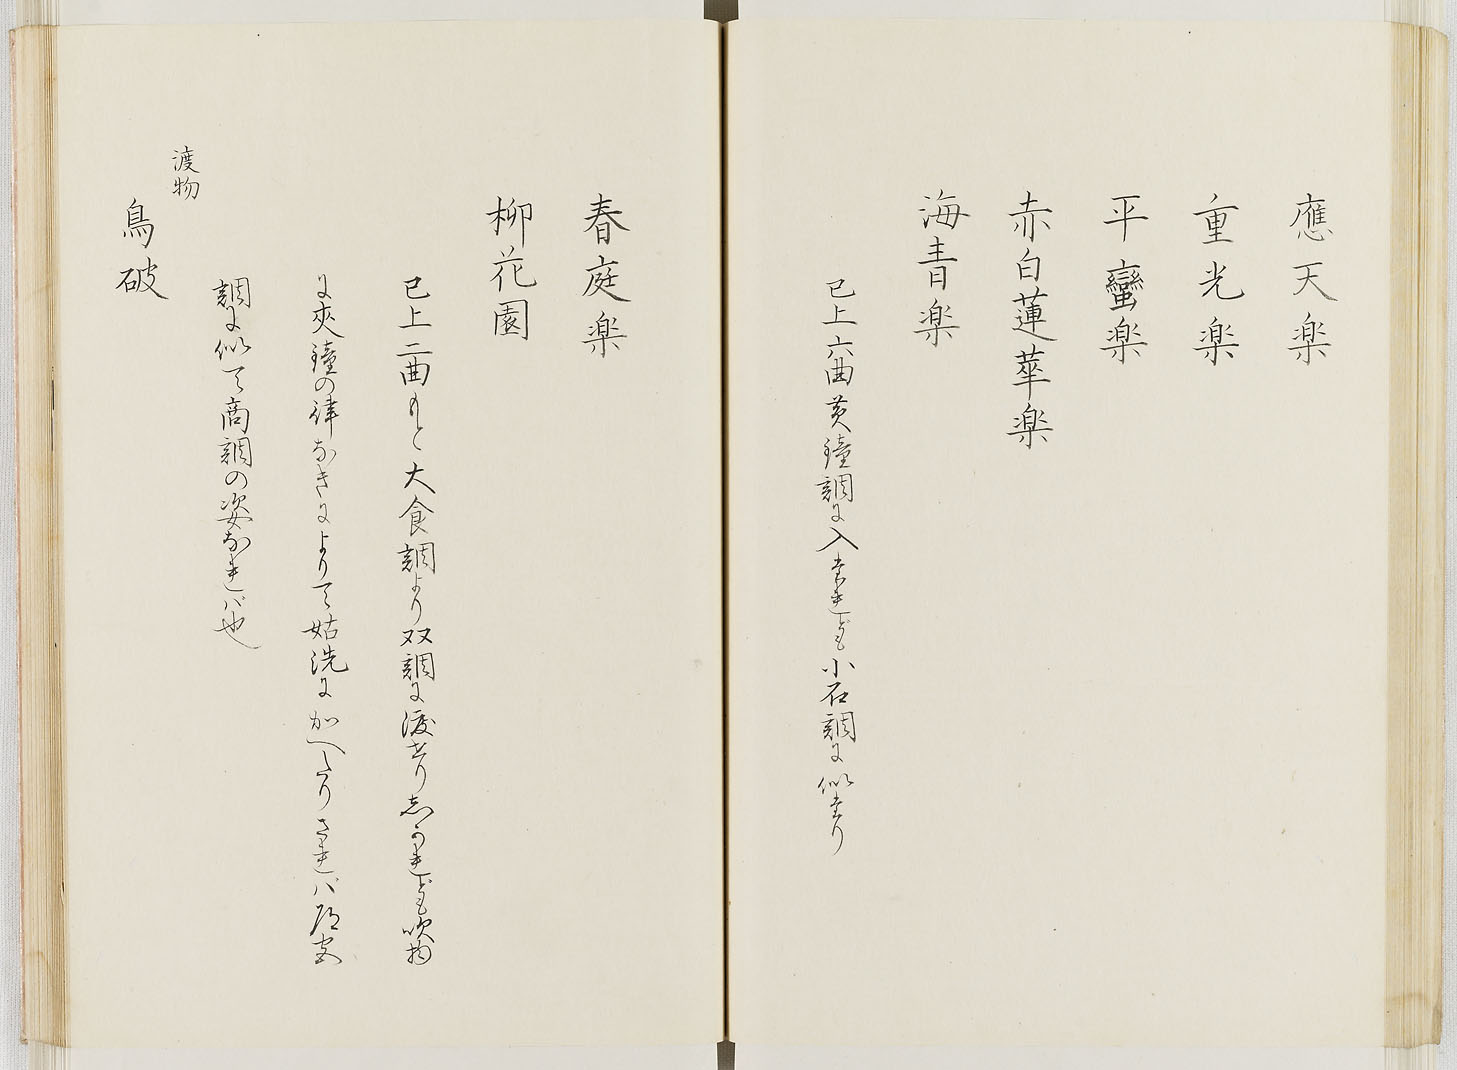 應天楽
重光楽
平蠻楽
赤白蓮華楽
海青楽
已上六曲黄鐘調に入たれども小石調に似たり
春庭楽
柳花園
已上二曲もと大食調より双調に渡せりしかれども吹物
に夾鐘の律なきによりて姑洗にかへたりされバ
調に似て商調の姿なれバ也
渡物
鳥破